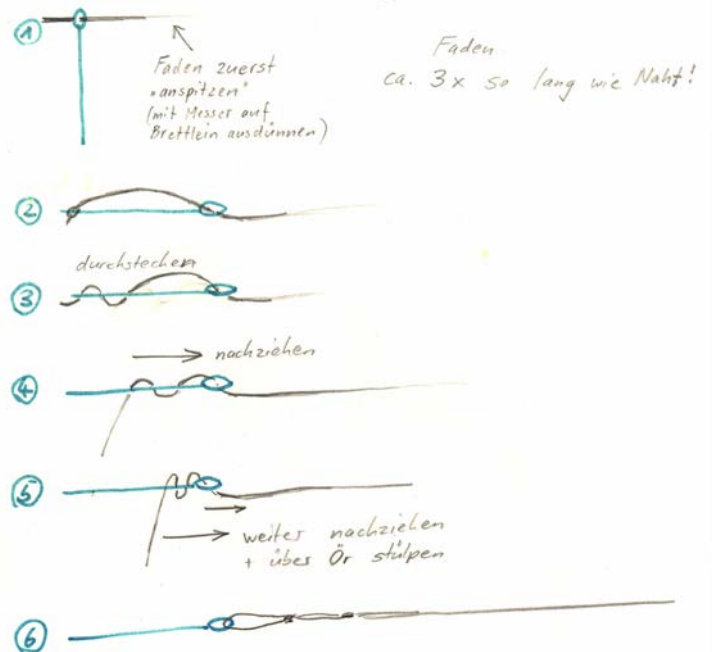 1
Faden zuerst
"anspitzen"
(mit Messer auf
Brettlein ausdünnen)
Faden
ca. 3x so lang wie Naht!
2
3
durchstechen
4
nachziehen
5
weiter nachziehen
+ über Ör stülpen
6